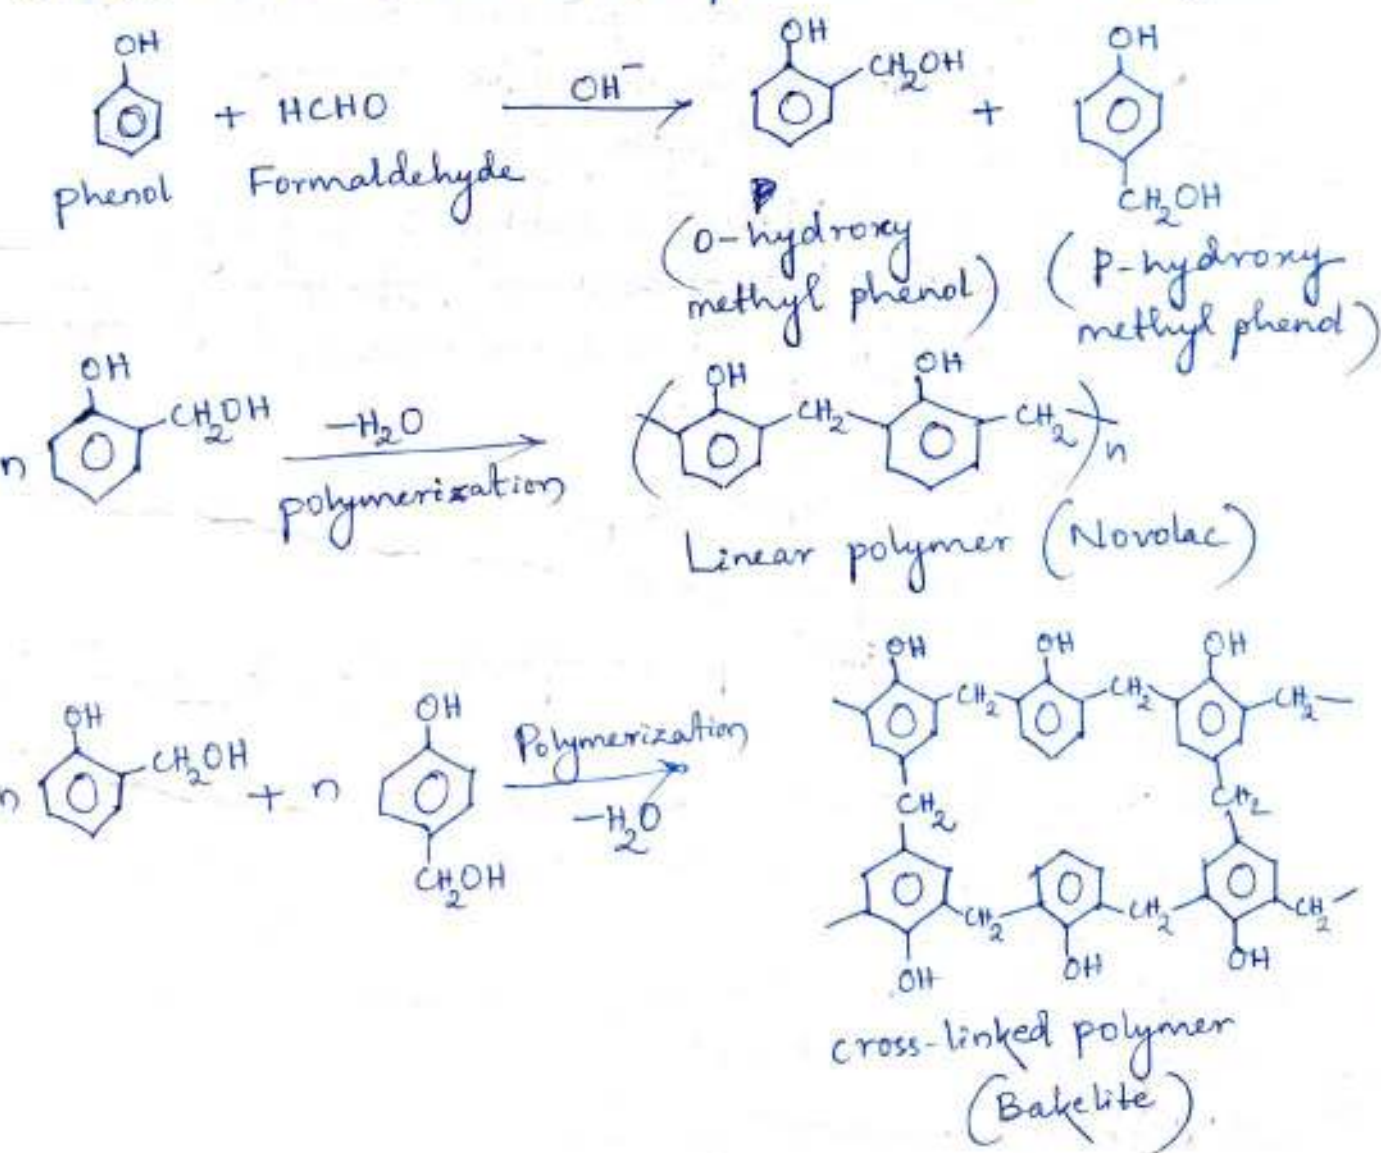 OH
+ HCHO
OH⁻
OH
CH₂OH
+
OH
CH₂OH
phenol
Formaldehyde
(o-hydroxy
methyl phenol)
(p-hydroxy
methyl phenol)
n
OH
CH₂OH
-H₂O
polymerization
(
OH
CH₂
OH
CH₂
)n
Linear polymer (Novolac)
n
OH
CH₂OH
+ n
OH
CH₂OH
Polymerization
-H₂O
OH
CH₂
OH
CH₂
OH
CH₂
CH₂
CH₂
CH₂
CH₂
CH₂
OH
OH
OH
cross-linked polymer
(Bakelite).